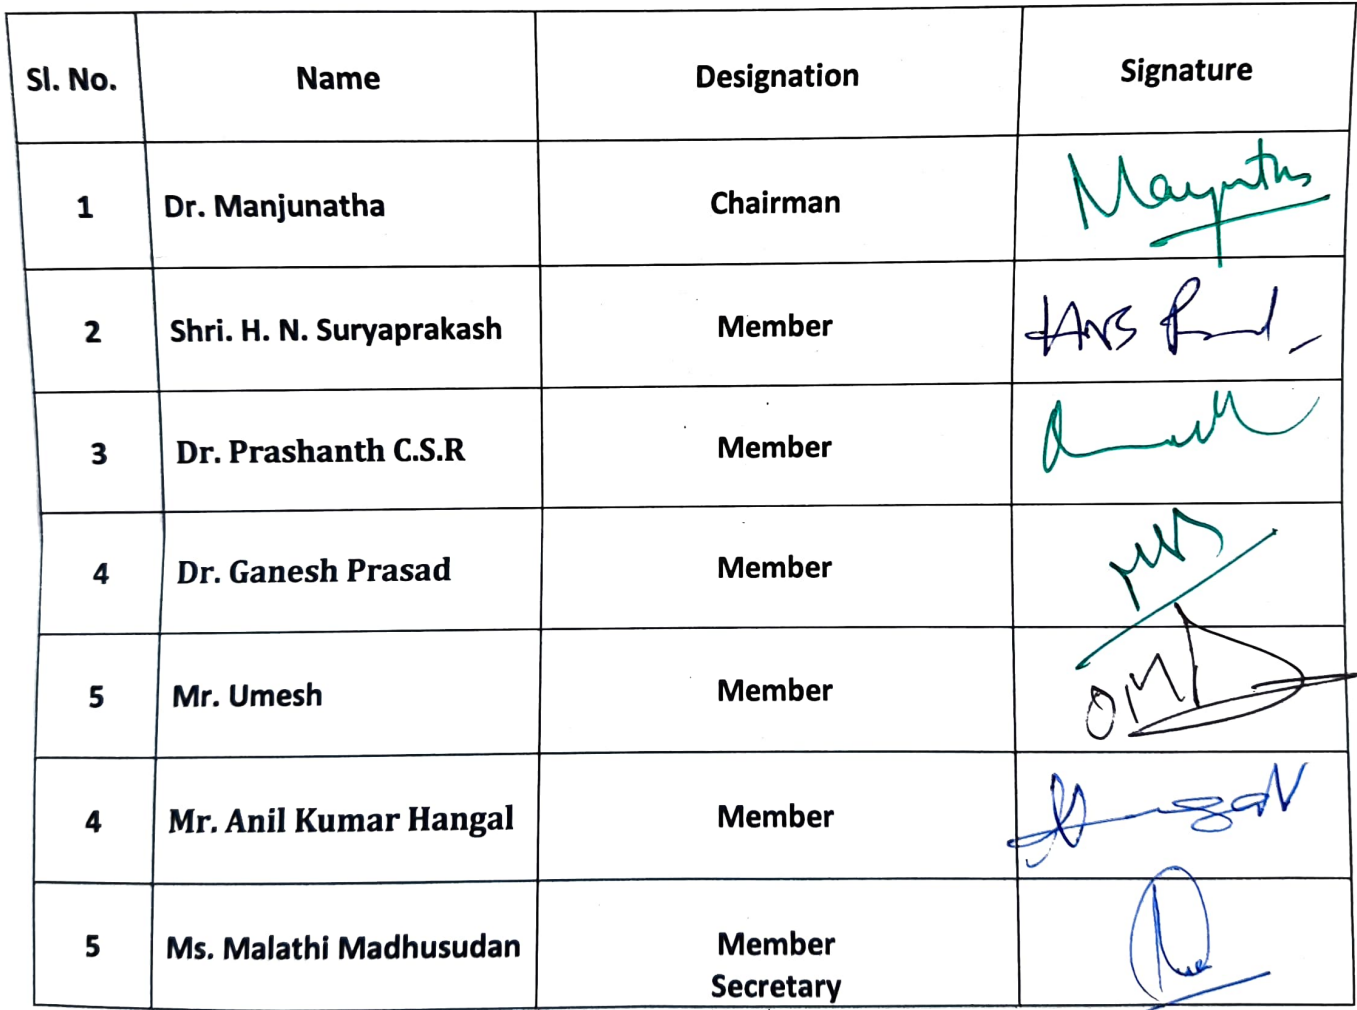 Sl. No. Name Designation Signature
1 Dr. Manjunatha Chairman
2 Shri. H. N. Suryaprakash Member
3 Dr. Prashanth C.S.R Member
4 Dr. Ganesh Prasad Member
5 Mr. Umesh Member
4 Mr. Anil Kumar Hangal Member
5 Ms. Malathi Madhusudan Member
Secretary